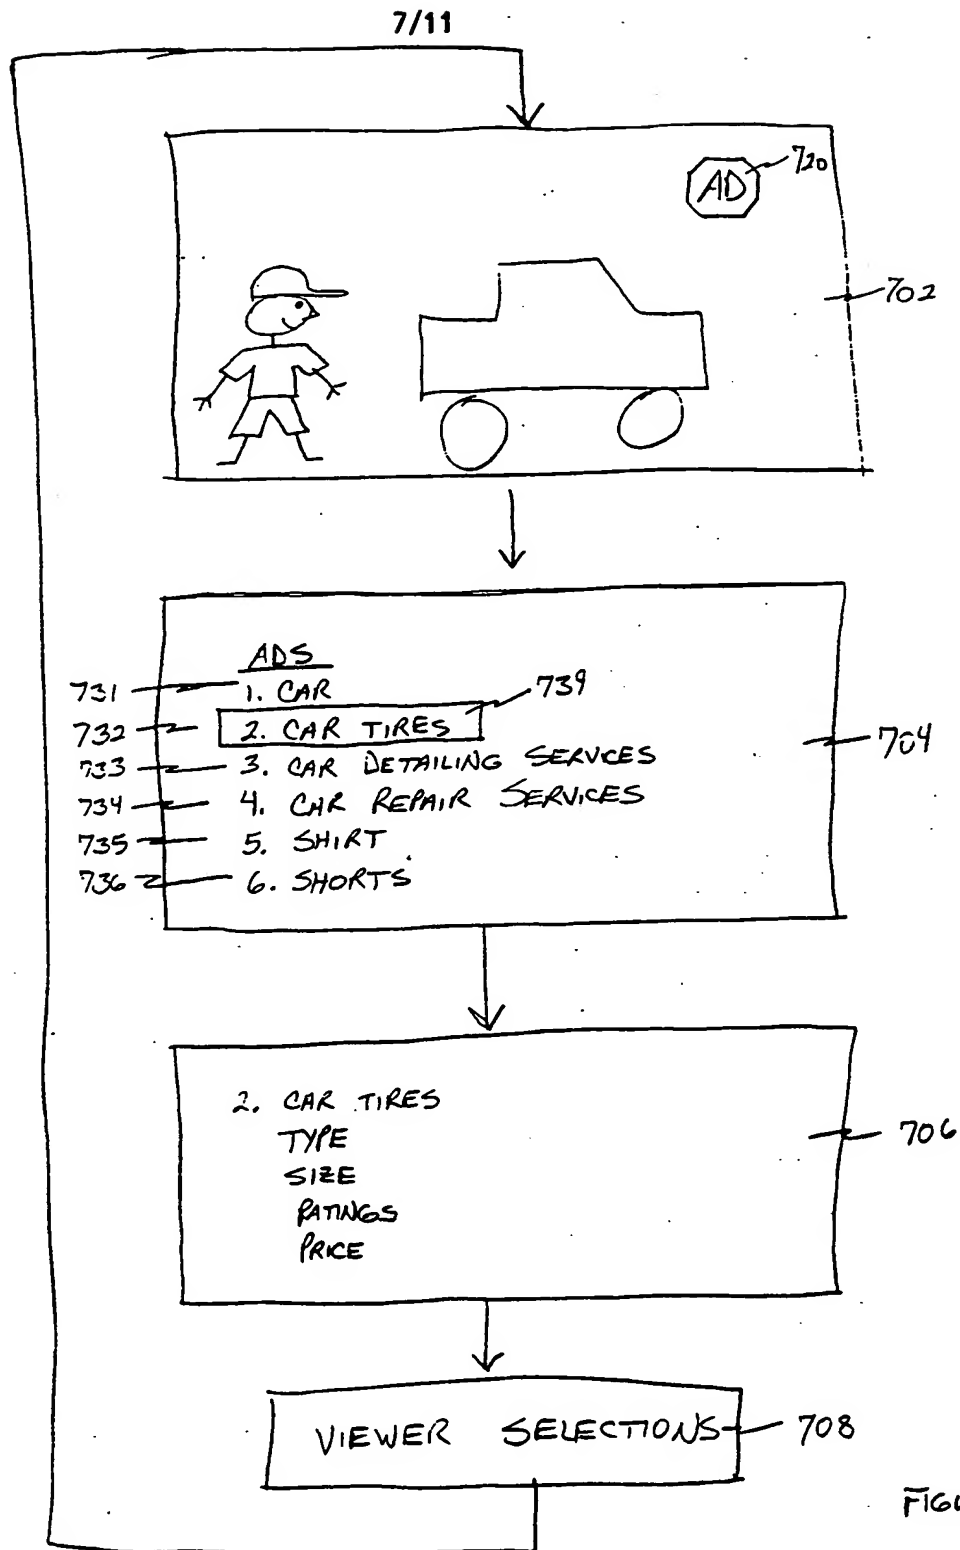 7/11
AD 720
702
ADS
731 1. CAR 739
732 2. CAR TIRES
733 3. CAR DETAILING SERVICES 704
734 4. CAR REPAIR SERVICES
735 5. SHIRT
736 6. SHORTS
2. CAR TIRES
TYPE 706
SIZE
RATINGS
PRICE
VIEWER SELECTIONS 708